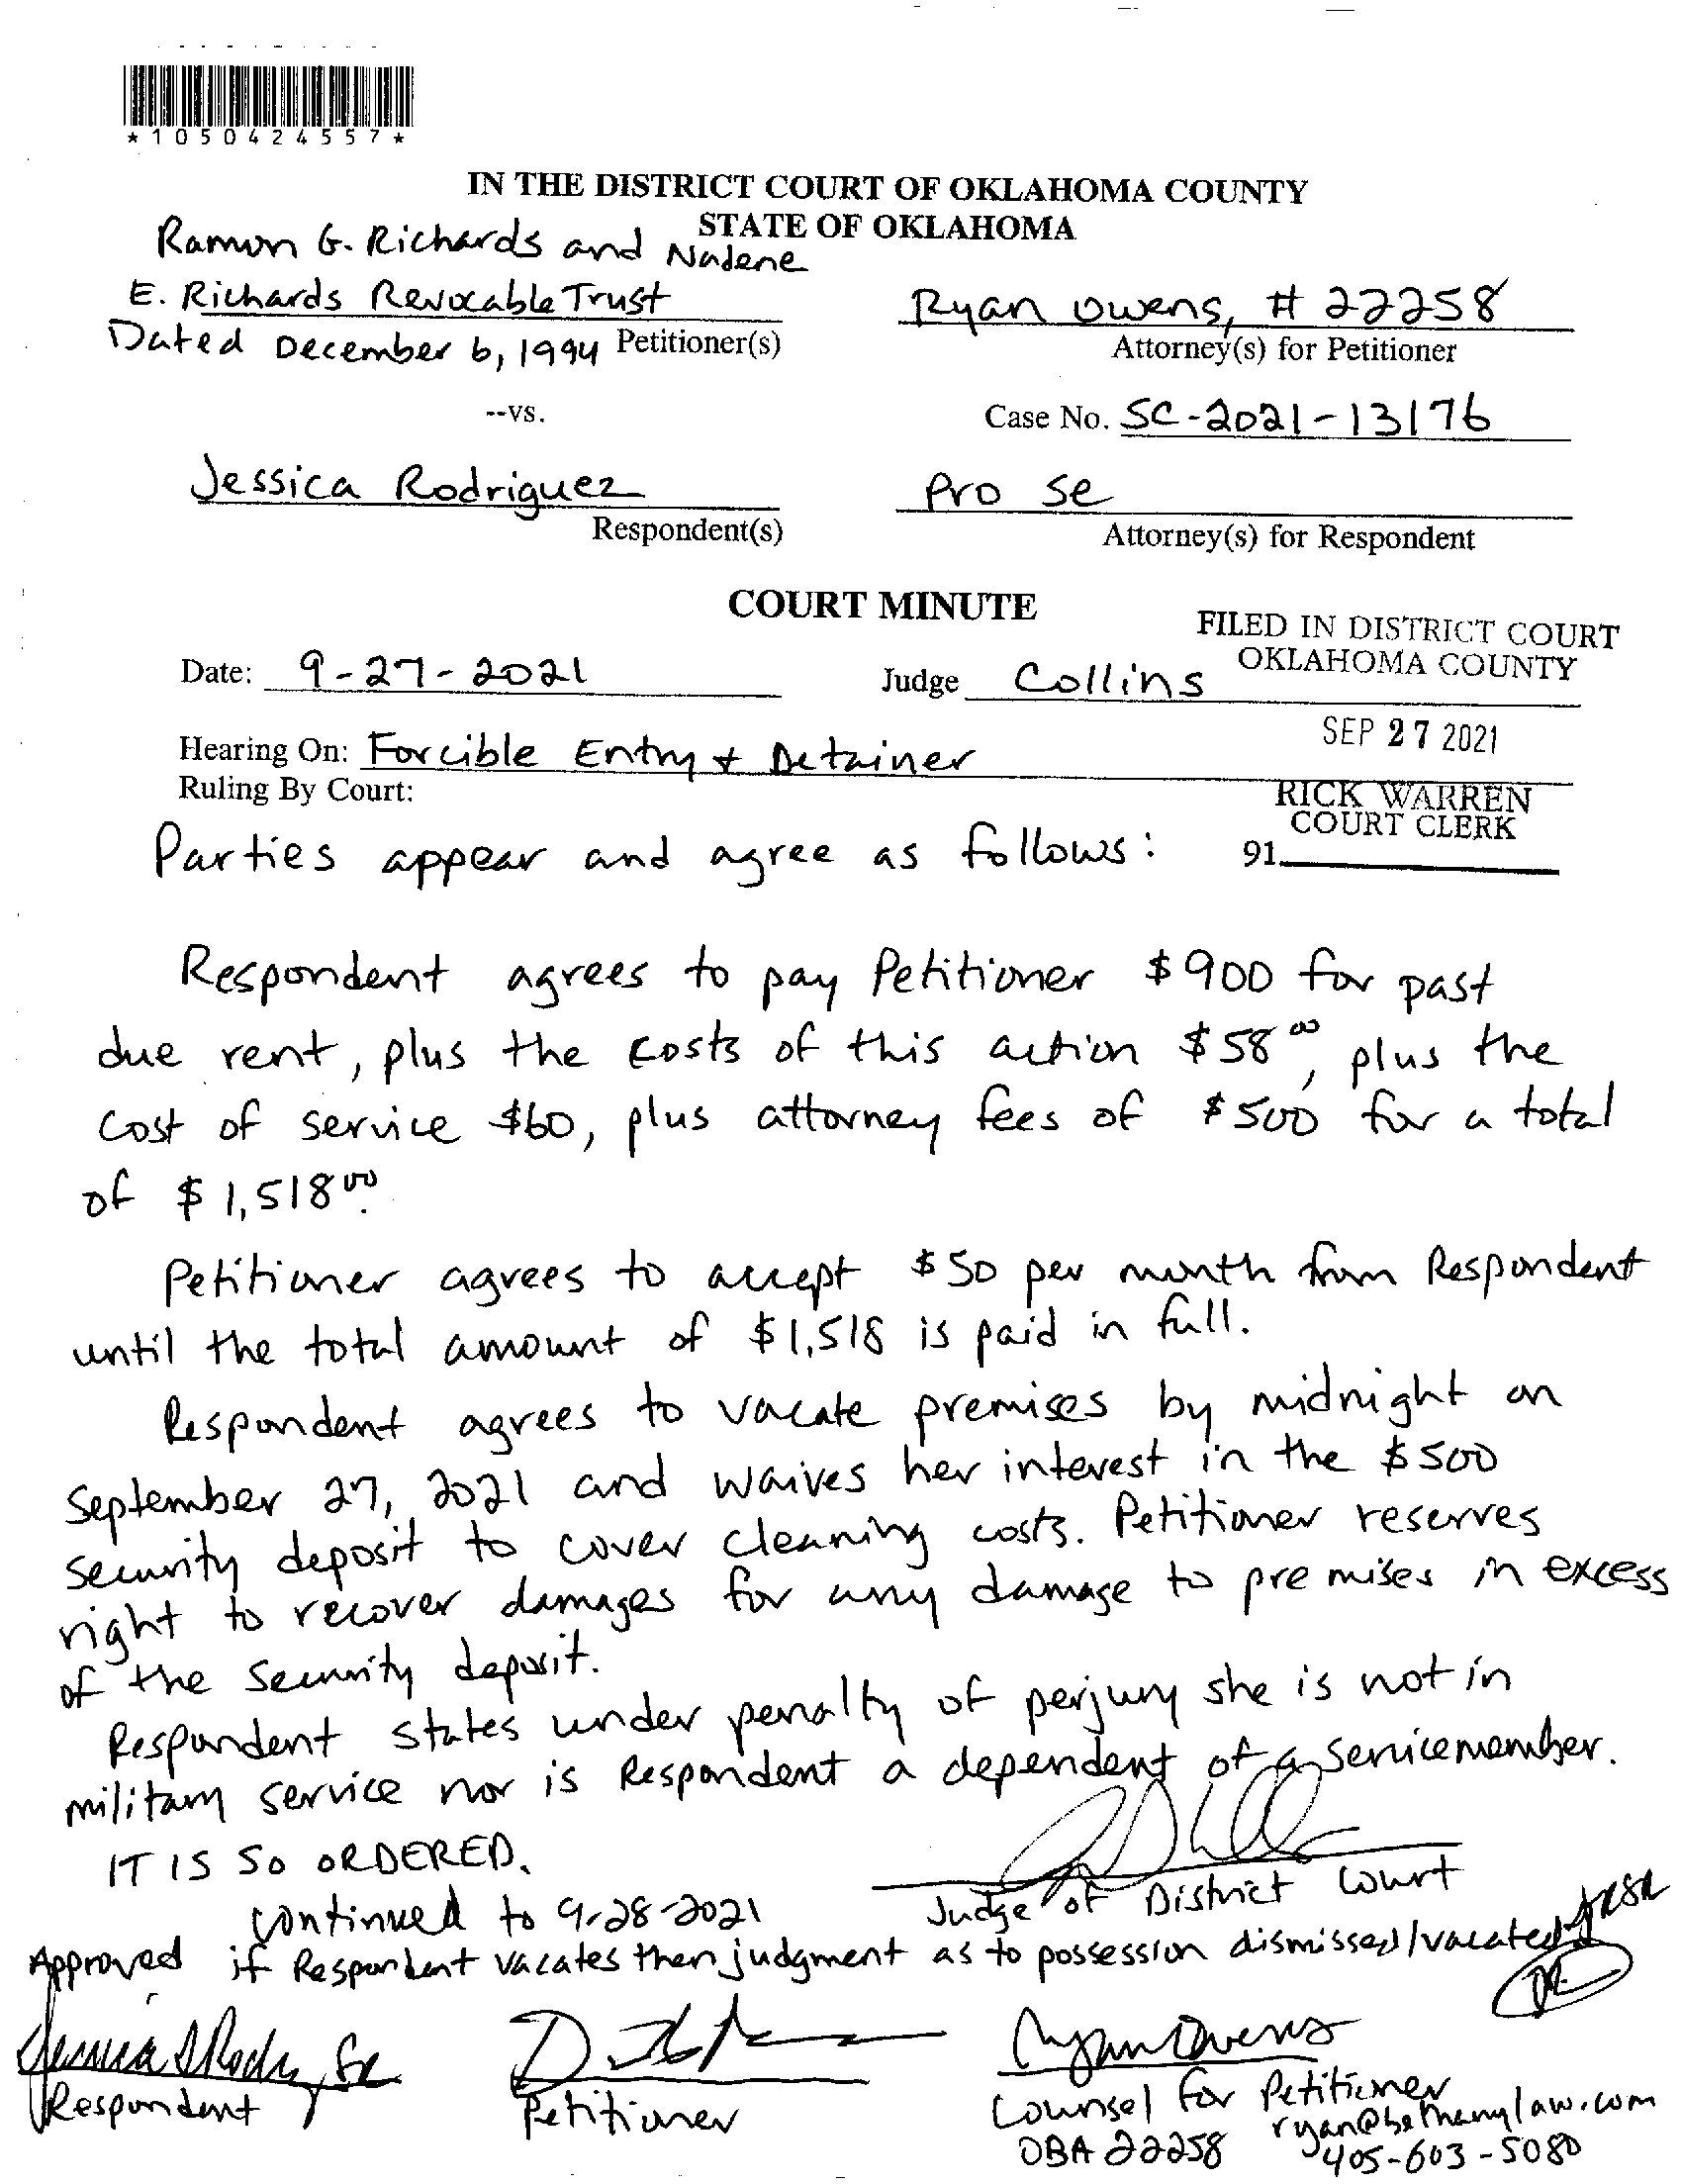 *1050424557*
IN THE DISTRICT COURT OF OKLAHOMA COUNTY
STATE OF OKLAHOMA
Ramon G. Richards and Nadene
E. Richards Revocable Trust
Dated December 6, 1994 Petitioner(s)
Ryan Owens, # 22258
Attorney(s) for Petitioner
--vs.
Case No. SC-2021-13176
Jessica Rodriguez
Respondent(s)
Pro se
Attorney(s) for Respondent
COURT MINUTE
FILED IN DISTRICT COURT
OKLAHOMA COUNTY
Date: 9-27-2021
Judge Collins
SEP 27 2021
Hearing On: Forcible Entry & Detainer
Ruling By Court:
RICK WARREN
COURT CLERK
91
Parties appear and agree as follows:
Respondent agrees to pay Petitioner $900 for past
due rent, plus the costs of this action $58 00, plus the
cost of service $60, plus attorney fees of $500 for a total
of $1,518 00.
Petitioner agrees to accept $50 per month from Respondent
until the total amount of $1,518 is paid in full.
Respondent agrees to vacate premises by midnight on
September 27, 2021 and waives her interest in the $500
security deposit to cover cleaning costs. Petitioner reserves
right to recover damages for any damage to premises in excess
of the security deposit.
Respondent states under penalty of perjury she is not in
military service nor is Respondent a dependent of a servicemember.
IT IS SO ORDERED.
Judge of District Court
Continued to 9-28-2021
if Respondent vacates then judgment as to possession dismissed/vacated
Approved
Ryan Owens
Respondent
Petitioner
Counsel for Petitioner
ryan@bethanylaw.com
OBA 22258
405-603-5080